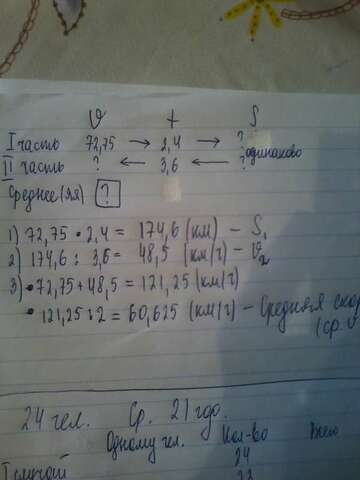 V t S
I часть 72,75 → 2,4 → ?
II часть ? ← 3,6 ← ? одинаково
Среднее(яя) ?
1) 72,75 · 2,4 = 174,6 (км) – S1
2) 174,6 : 3,6 = 48,5 (км/ч) – V2
3) • 72,75 + 48,5 = 121,25 (км/ч)
• 121,25 : 2 = 60,625 (км/ч) – Средняя ско
(ср.
24 чел. Ср. 21 годо.
Одному чел. Кол-во Всего
24